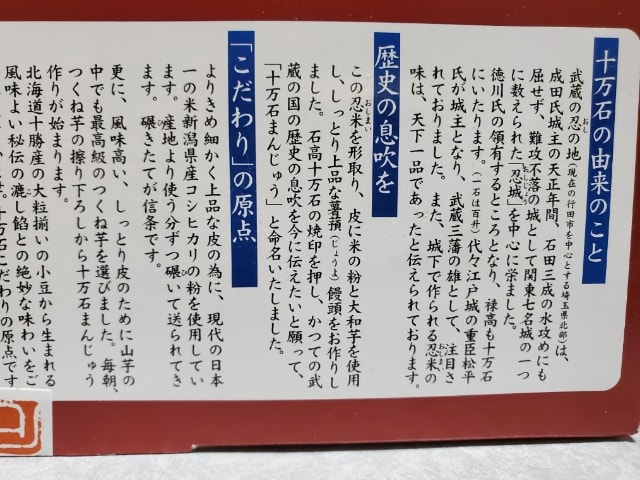 十万石の由来のこと
武蔵の忍の地(現在の行田市を中心とする埼玉県北部)は、
成田氏城主の天正年間、石田三成の水攻めにも
屈せず、難攻不落の城として関東七名城の一つ
に数えられた「忍城」を中心に栄ました。
徳川氏の領有するところとなり、禄高も十万石
にいたります。(一石は百升)代々江戸城の重臣松平
氏が城主となり、武蔵三藩の雄として、注目さ
れておりました。また、城下で作られる忍米の
味は、天下一品であったと伝えられております。
歴史の息吹を
この忍米を形取り、皮に米の粉と大和芋を使用
し、しっとり上品な薯蕷(じょうよ)饅頭をお作りし
ました。石高十万石の焼印を押し、かつての武
蔵の国の歴史の息吹を今に伝えたいと願って、
「十万石まんじゅう」と命名いたしました。
「こだわり」の原点
よりきめ細かく上品な皮の為に、現代の日本
一の米新潟県産コシヒカリの粉を使用してい
ます。産地より使う分ずつ碾いて送られてき
ます。碾きたてが信条です。
更に、風味高い、しっとり皮のために山芋の
中でも最高級のつくね芋を選びました。毎朝、
つくね芋の擦り下ろしから十万石まんじゅう
作りが始まります。
北海道十勝産の大粒揃いの小豆から生まれる
風味よい秘伝の漉し餡との絶妙な味わいをご
十万石こだわりの原点です